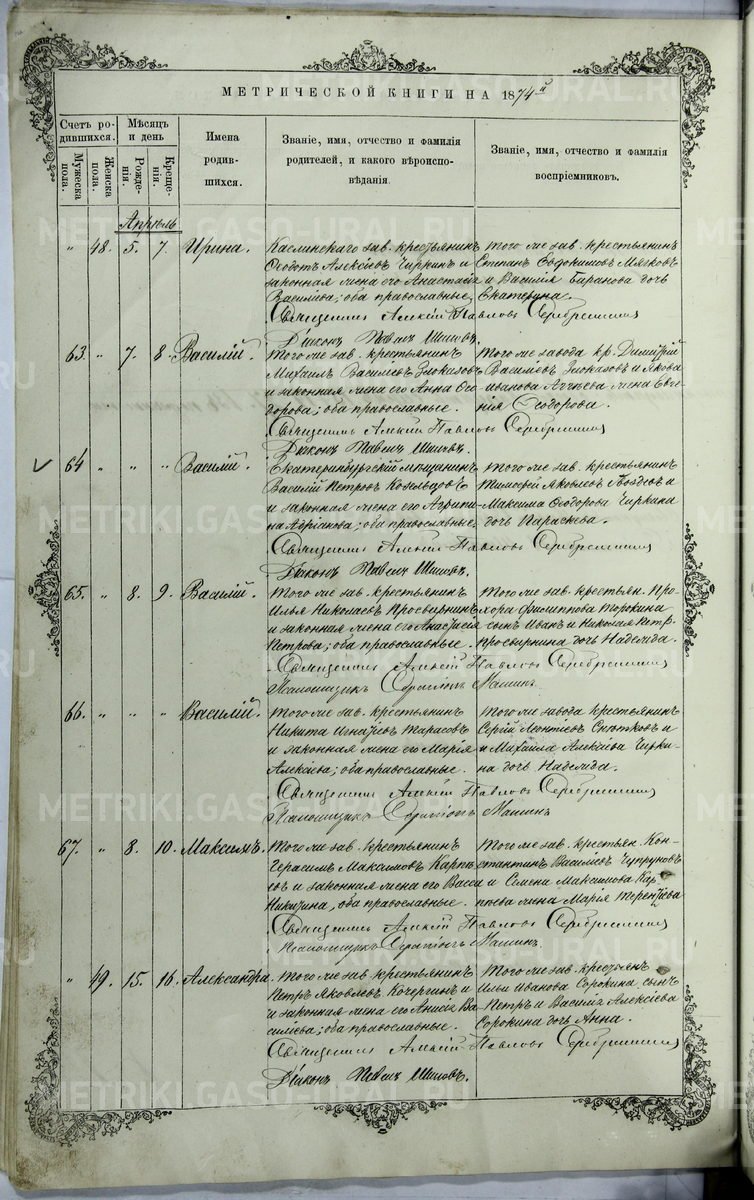 МЕТРИЧЕСКОЙ КНИГИ НА 1874й
Счетъ родившихся.
Мужеска пола.
Женска пола.
Мѣсяцъ и день
Рожденія.
Крещенія.
Имена родившихся.
Званіе, имя, отчество и фамилія родителей, и какого вѣроисповѣданія.
Званіе, имя, отчество и фамилія воспріемниковъ.
Апрѣль
" 48. 5. 7. Ирина.
Каслинскаго зав. крестьянинъ
Ѳедотъ Алексѣевъ Чиркинъ и
законная жена его Анастасія
Василіева; оба православные,
Того же зав. крестьянинъ
Степанъ Евдокимовъ Мягковъ
и Василія Баранова дочь
Екатерина.
Священникъ Алексій Павловъ Серебренниковъ
Діаконъ Павелъ Шишовъ.
63. " 7. 8. Василій.
Того же зав. крестьянинъ
Михаилъ Василіевъ Злоказовъ
и законная жена его Анна Его
горова; оба православные.
Того же завода кр. Димитрій
Василіевъ Злоказовъ и Якова
Иванова жена Евге
нія Ѳеодорова.
Священникъ Алексій Павловъ Серебренниковъ
Діаконъ Павелъ Шишовъ.
64 " " " Василій.
Екатеринбургскій мѣщанинъ
Василій Петровъ
и законная жена его Агрипи
на Адріанова; оба православные,
Того же зав. крестьянинъ
Тимофей Яковлевъ Гвоздевъ и
Максима Ѳеодорова Чиркина
дочь Параскева.
Священникъ Алексій Павловъ Серебренниковъ
Діаконъ Павелъ Шишовъ.
65. " 8. 9. Василій.
Того же зав. крестьянинъ
Илья Николаевъ Просвирнинъ
и законная жена его Анастасія
Петрова; оба православные.
Того же зав. крестьян. Про
хора Филиппова Торокина
сынъ Иванъ и Николая Петр.
Просвирнина дочь Надежда.
Священникъ Алексій Павловъ Серебренниковъ
Псаломщикъ Серапіонъ Машинъ.
66. " " " Василій.
Того же зав. крестьянинъ
Никита Игнатіевъ Тарасовъ
и законная жена его Марія
Алексѣева; оба православные.
Того же завода крестьянинъ
Сергій Леонтіевъ Снѣтковъ и
и Михаила Алексѣева Чирки
на дочь Надежда.
Священникъ Алексій Павловъ Серебренниковъ
Псаломщикъ Серапіонъ Машинъ
67. " 8. 10. Максимъ.
Того же зав. крестьянинъ
Герасимъ Максимовъ Карпѣ
евъ и законная жена его Васса
Никитина, оба православные.
Того же зав. крестьян. Кон
стантинъ Василіевъ Чупруновъ
и Семена Максимова Кар
пѣева жена Марія Терентіева
Священникъ Алексій Павловъ Серебренниковъ
Псаломщикъ Серапіонъ Машинъ.
" 49. 15. 16. Александра.
Того же зав. крестьянинъ
Петръ Яковлевъ Кочергинъ и
и законная жена его Анисія Ва
силіева; оба православные.
Того же зав. крестьян.
Ильи Иванова Сорокина сынъ
Петръ и Василія Алексѣева
Сорокина дочь Анна.
Священникъ Алексій Павловъ Серебренниковъ
Діаконъ Павелъ Шишовъ.
METRIKI.GASO-URAL.RU